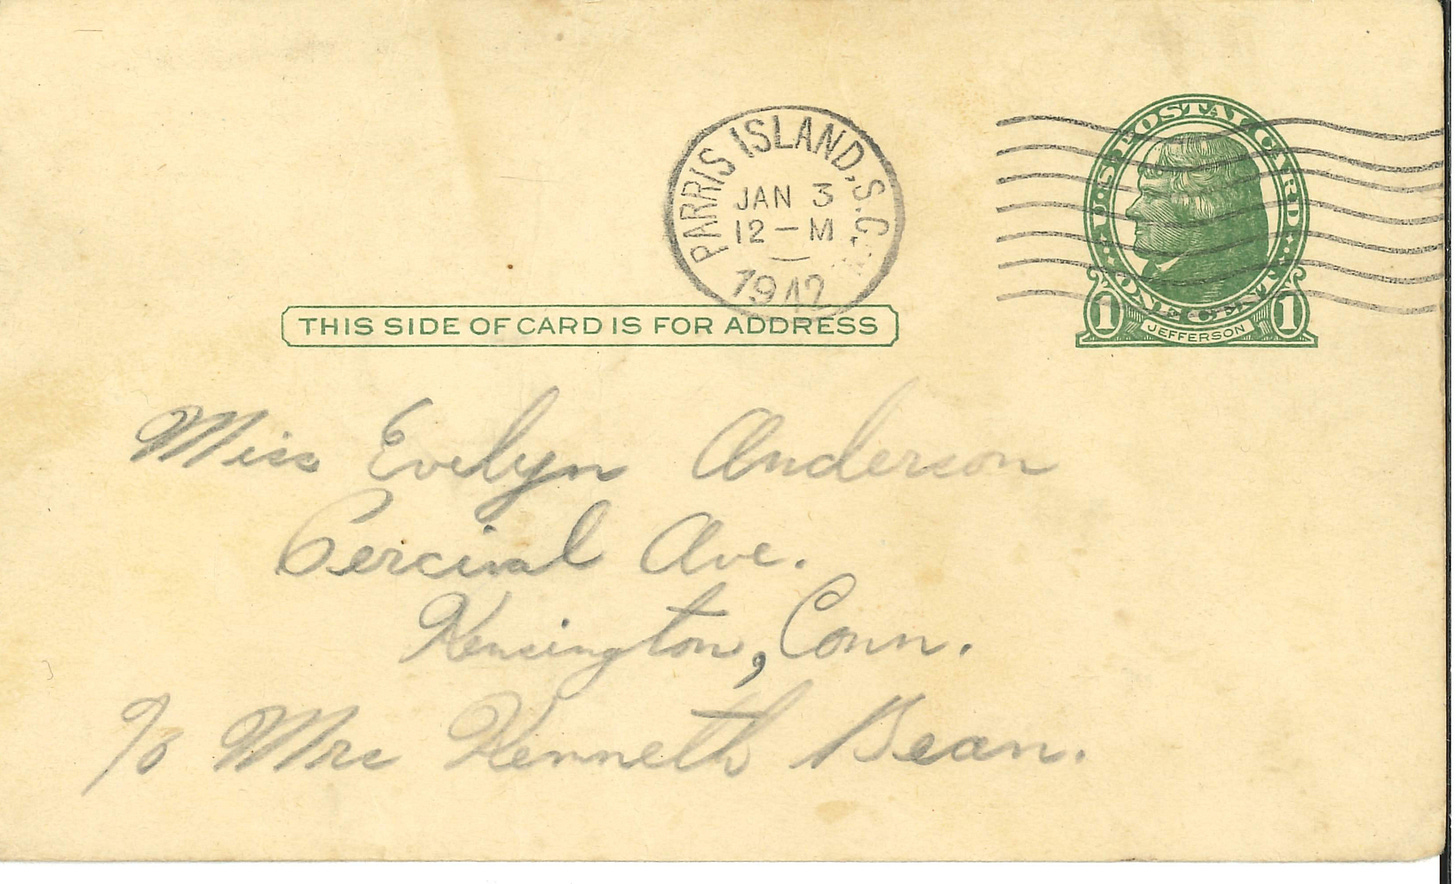 PARRIS ISLAND, S.C.
JAN 3
12 — M
1942
U.S. POSTAL CARD
ONE CENT
1 JEFFERSON 1
THIS SIDE OF CARD IS FOR ADDRESS
Miss Evelyn Anderson
Percival Ave.
Kensington, Conn.
℅ Mrs Kenneth Bean.